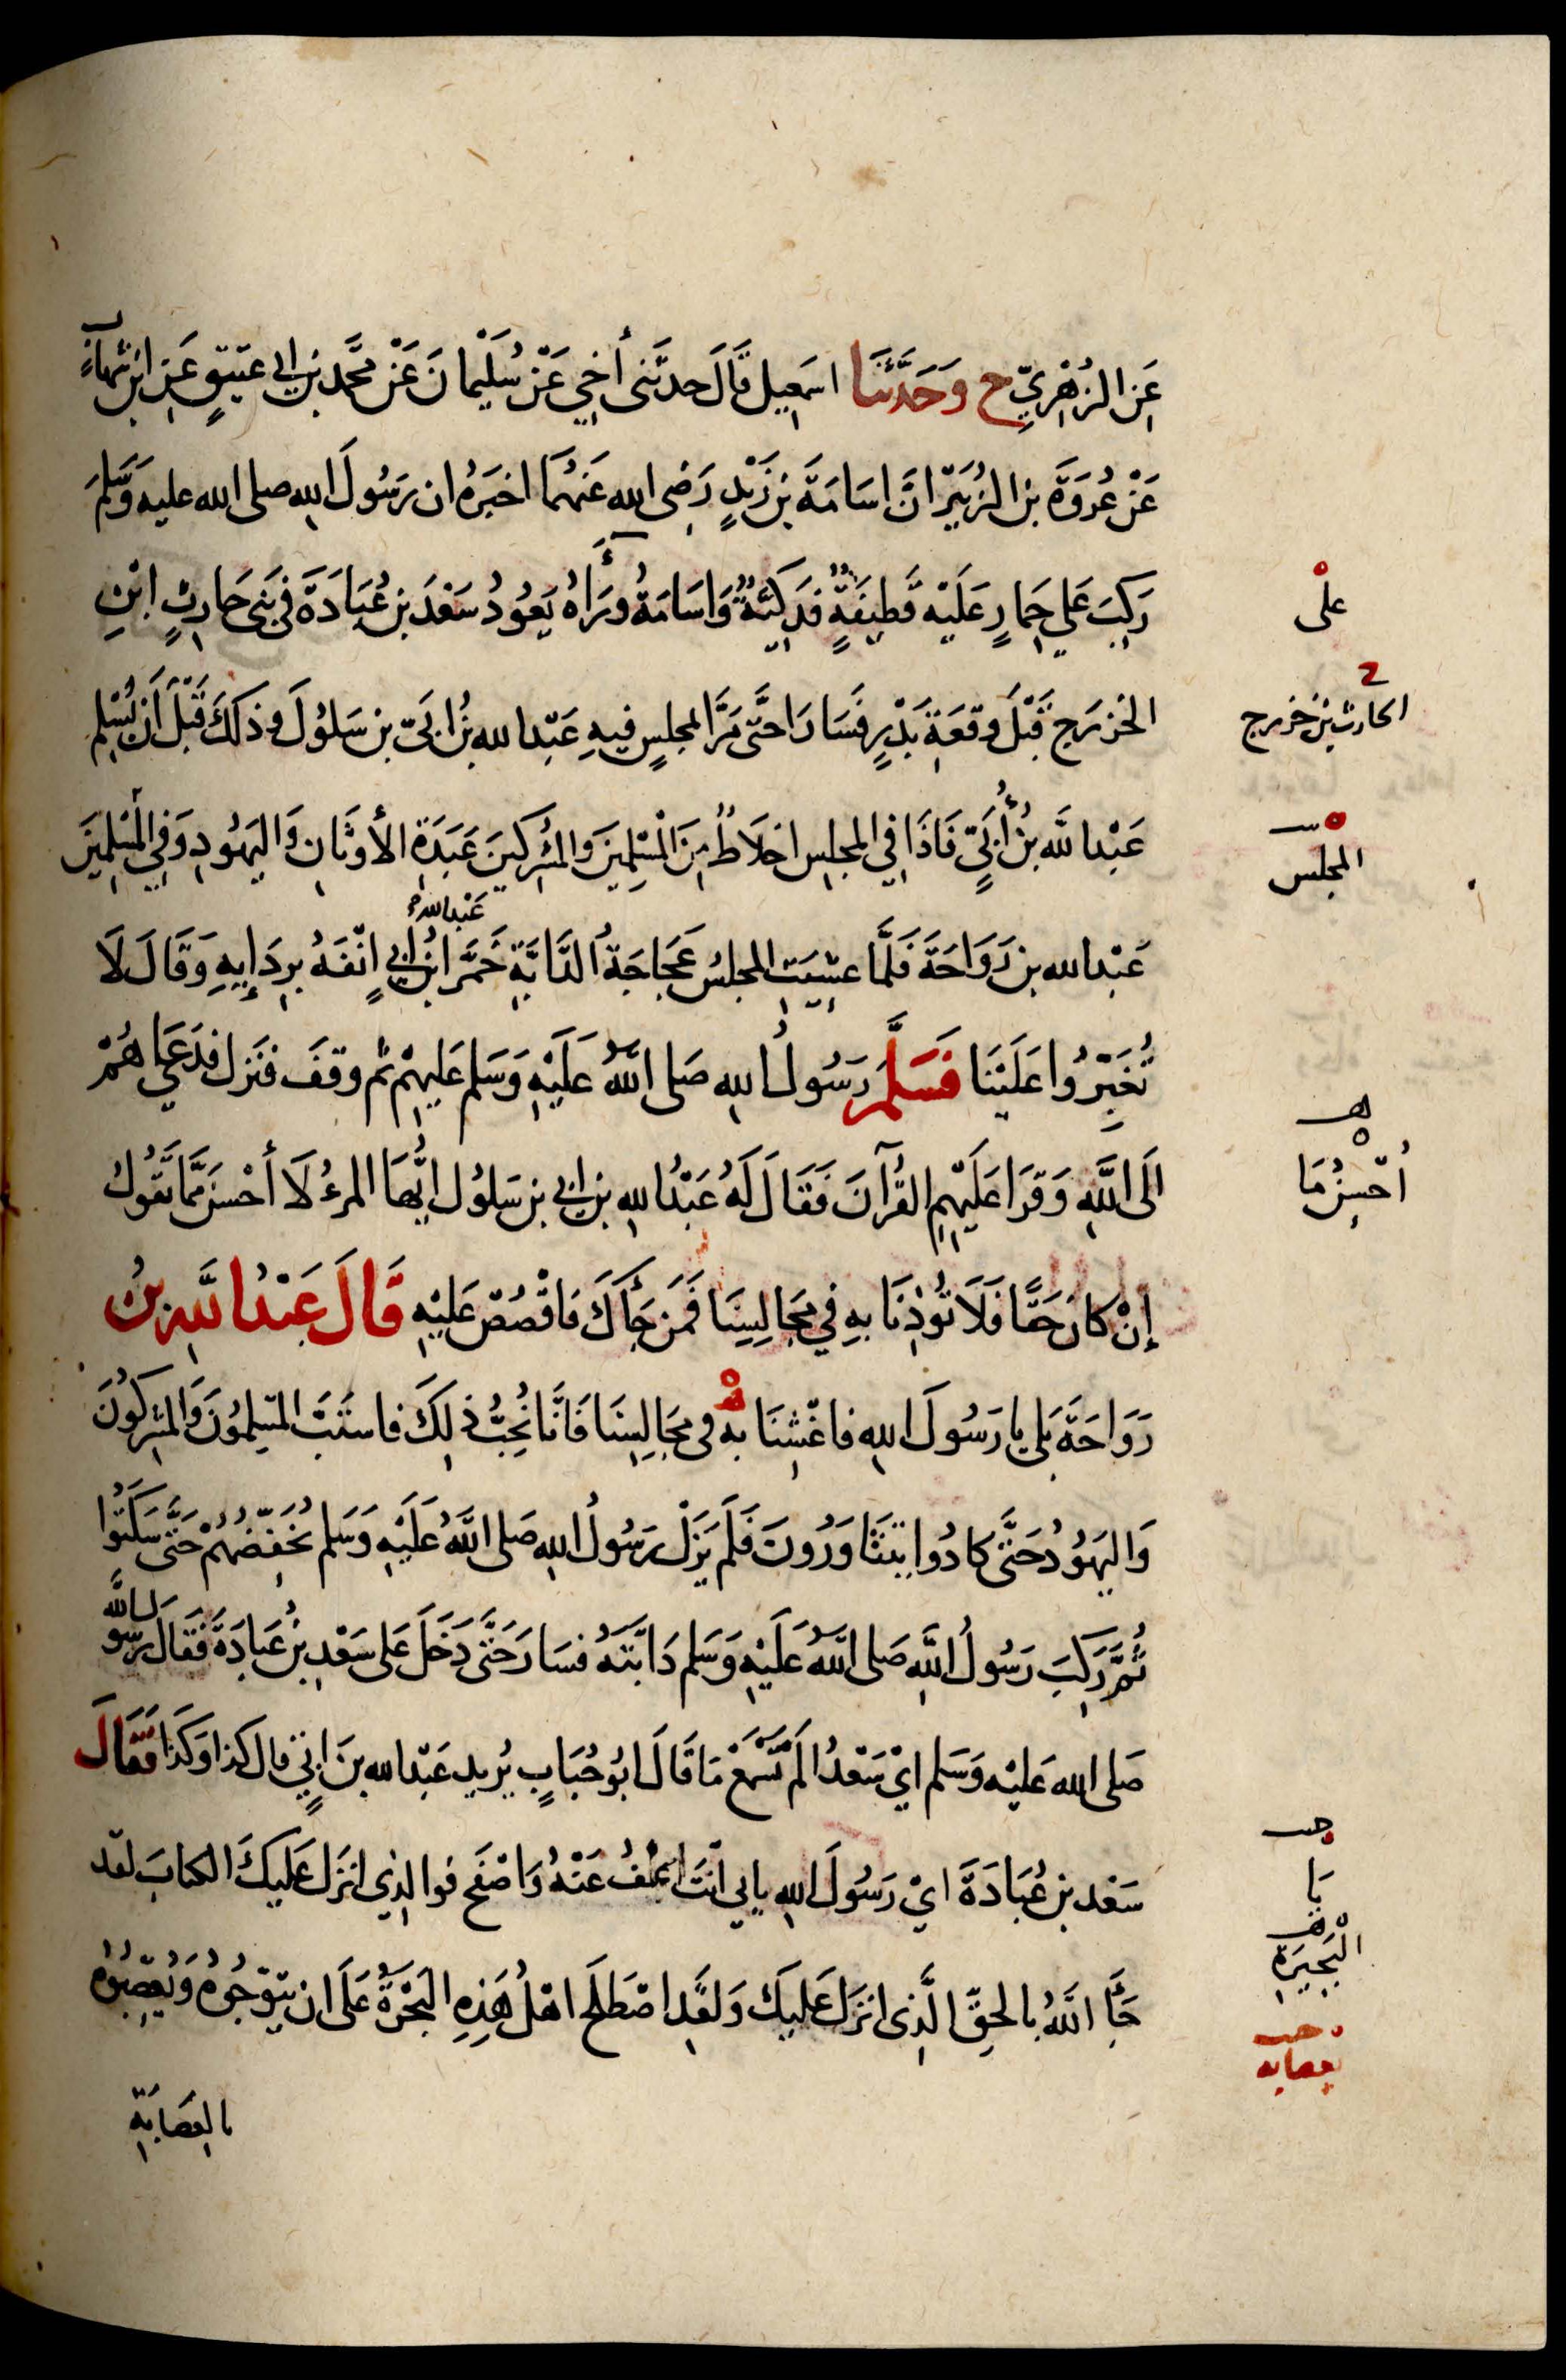 عَنِ الزُهْرِيِّ ح وَحَدَّثَنَا اسمَعِيل قَالَ حدثَنى أَخِي عَنْ سُلَيْمانَ عَنْ محمَّد بن ابى عَتِيقٍ عَنِ ابن شِهابٍ
عَنْ عُروَةَ بن الزُبَيْر انَّ اسَامَةَ بن زَيْدٍ رَضِى الله عَنهُمَا اخبَرَهُ ان رَسُولَ اللهِ صلى الله عليه وَسَلَّمَ
رَكِبَ عَلي حِمَارٍ عَلَيْهِ قَطِيفَةٌ فَدَكِيَّةٌ وَاسَامَةُ وَرَآءَهُ يَعُودُ سَعْدَ بن عُبَادَةَ فى بَنِى حَارِثِ ابْنِ
على
الخزرَج قَبْلَ وَقعَةِ بَدْرٍ فَسَارَا حَتَّى مَرَّا بمجلِسٍ فيهِ عَبْدُ الله بْنُ ابَىّ بن سَلُولَ وذَلكَ قَبْلَ أنْ يُسْلِم
الحارث بن خزرج
عَبْدُ اللَّه بْنُ أُبَيٍّ فَاذَا فِي المجلِسِ اخلَاطٌ مِنَ الْمُسْلِمِينَ وَالمشْرِكِينَ عَبَدَةِ الأَوثَانِ وَاليَهُودِ وَفِي المُسْلِمِينَ
المجلس
عبدالله
عَبْدُ الله بن رَوَاحَةَ فَلَمَّا غشِيَتِ المجلِسَ عَجَاجَةُ الدَّابَّةِ خَمَّرَ ابْنُ أُبَيٍ انْفَهُ بِرِدَايِهِ وَقَالَ لَا
تُغَبِّرُوا عَلَيْنَا فَسَلَّمَ رَسُولُ اللهِ صَلى اللَّهُ عَلَيْهِ وَسَلم عَلَيهِمْ ثم وَقفَ فنَزل فدَعَاهُمْ
الَى اللَّهِ وَقَرَا عَلَيْهِمِ القُرآنَ فَقَالَ لَهُ عَبْدُ اللهِ بن ابى بن سَلوُل ايُّهَا المرءُ لَا أَحْسنَ مِمَّا تَقُولُ
أُحْسِنُ مَا
إنْ كانَ حَقًّا فَلَا تُوذِنَا بهِ فِي مَجَالِسِنَا فَمَن جَآءَكَ فَاقْصُصْ عَلَيْهِ قَالَ عَبْدُ اللَّهِ بنُ
رَوَاحَةَ بَلى يا رَسُولَ اللهِ فاغْشِنَا بهِ فى مجَالِسِنَا فَانَّا نُحِبُّ ذلِكَ فاستَبَّ المسْلِمُونَ وَالمشرِكُونَ
وَاليَهُودُ حَتَّى كادُوا يتَثَاوَرُونَ فَلَم يَزَلْ رَسُولُ اللهِ صَلى اللَّهُ عَلَيْهِ وَسَلم يُخَفِّضُهُمْ حَتَّى سَكَتُوا
ثُمَّ رَكِبَ رَسُولُ اللَّهِ صَلى اللَّهُ عَلَيْهِ وَسَلم دَابَّتَهُ فسَارَ حَتَّى دَخَلَ عَلى سَعْدِ بْنِ عُبَادَةَ فَقَالَ رسُولُ الله
صَلى الله عَليْه وَسَلم ايْ سَعْدُ الَم تَسْمَعْ مَا قَالَ ابُو حُبَابٍ يُريد عَبْدَ الله بنَ ابَيٍّ قال كذا وَكَذَا فَقَالَ
سَعْد بن عُبَادَةَ ايْ رَسُولَ اللهِ بابى انْتَ اعْفُ عَنْهُ وَاصْفَح فوا لذِى انزَلَ عَلَيكَ الكتابَ لقد
يَا
جَآءَ اللَّهُ بالحقِّ الَّذِى انزَلَ عَلَيكَ وَلقَدِ اصْطَلَحَ اهْلُ هَذِهِ البَحْرَةِ عَلَى ان يُتَوِّجُوهُ وَيُعَصِّبُوهُ
البُحَيرَةِ
بعصابه
بالعِصَابَةِ